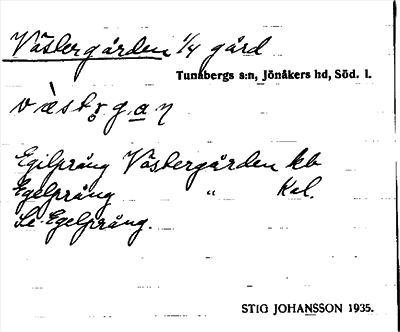 Väsbergården 1/4 gård
Tunabergs s:n, Jönåkers hd, Söd. l.
v ä̀ s b r g a n
Egilspräng Väsbergården kb
Egelspräng " Kal.
Se Egelspräng.
STIG JOHANSSON 1935.